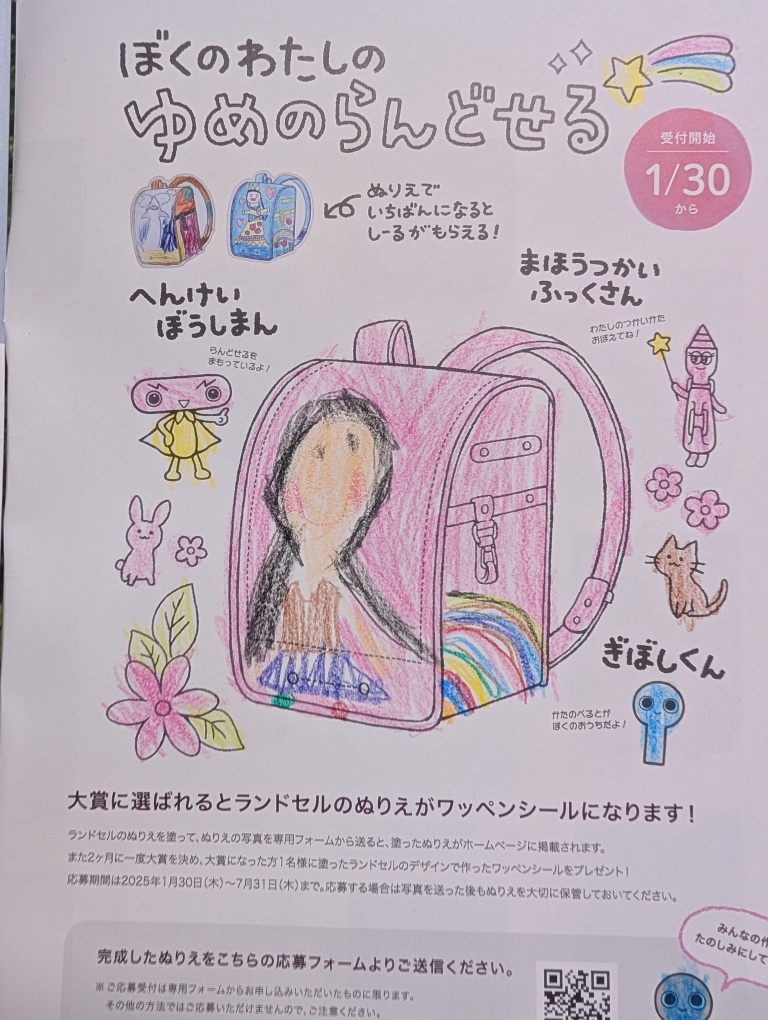 ぼくのわたしの
ゆめのらんどせる
受付開始
1/30
から
ぬりえで
いちばんになると
しーるがもらえる!
まほうつかい
ふっくさん
わたしのつかいかた
おぼえてね!
へんけい
ぼうしまん
らんどせるを
まもっているよ!
ぎぼしくん
かたのべるとが
ぼくのおうちだよ!
大賞に選ばれるとランドセルのぬりえがワッペンシールになります!
ランドセルのぬりえを塗って、ぬりえの写真を専用フォームから送ると、塗ったぬりえがホームページに掲載されます。
また2ヶ月に一度大賞を決め、大賞になった方1名様に塗ったランドセルのデザインで作ったワッペンシールをプレゼント!
応募期間は2025年1月30日(木)~7月31日(木)まで。応募する場合は写真を送った後もぬりえを大切に保管しておいてください。
完成したぬりえをこちらの応募フォームよりご送信ください。
※ご応募受付は専用フォームからお申し込みいただいたものに限ります。
その他の方法ではご応募いただけませんので、ご注意ください。
みんなの作
たのしみにして